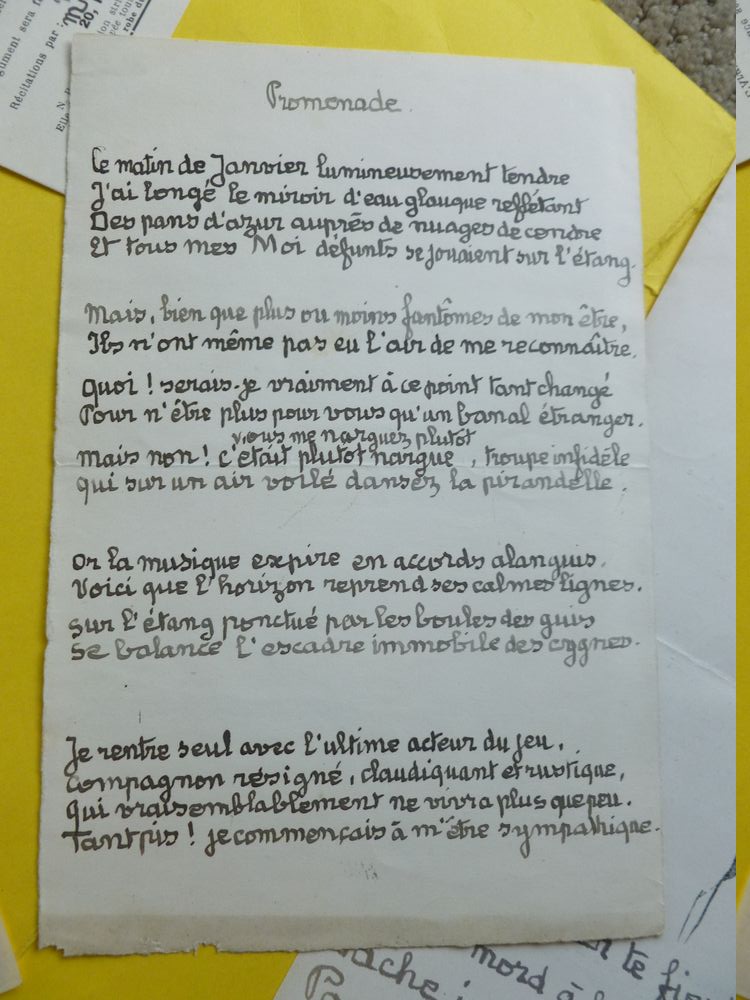 gument sera
Récitations par
20,
robe de
N. P.
Elle
Promenade.
Ce matin de Janvier lumineusement tendre
J'ai longé le miroir d'eau glauque reflétant
Des pans d'azur auprès de nuages de cendre
Et tous mes Moi défunts se jouaient sur l'étang.
Mais, bien que plus ou moins fantômes de mon être,
Ils n'ont même pas eu l'air de me reconnaître.
Quoi ! serais-je vraiment à ce point tant changé
Pour n'être plus pour vous qu'un banal étranger.
vous me narguez plutôt
Mais non ! c'était plutôt nargue , troupe infidèle
qui sur un air voilé dansez la pirandelle.
Or la musique expire en accords alanguis.
Voici que l'horizon reprend ses calmes lignes.
Sur l'étang ponctué par les boules des guis
Se balance l'escadre immobile des cygnes.
Je rentre seul avec l'ultime acteur du jeu,
Compagnon résigné, claudiquant et rustique,
Qui vraisemblablement ne vivra plus que peu.
Tant pis ! je commençais à m'être sympathique.
te
mord à